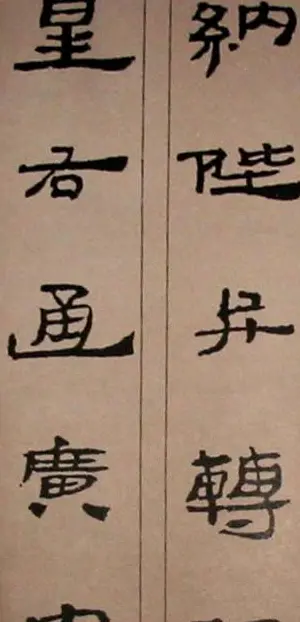 納陛弁轉
星右通廣